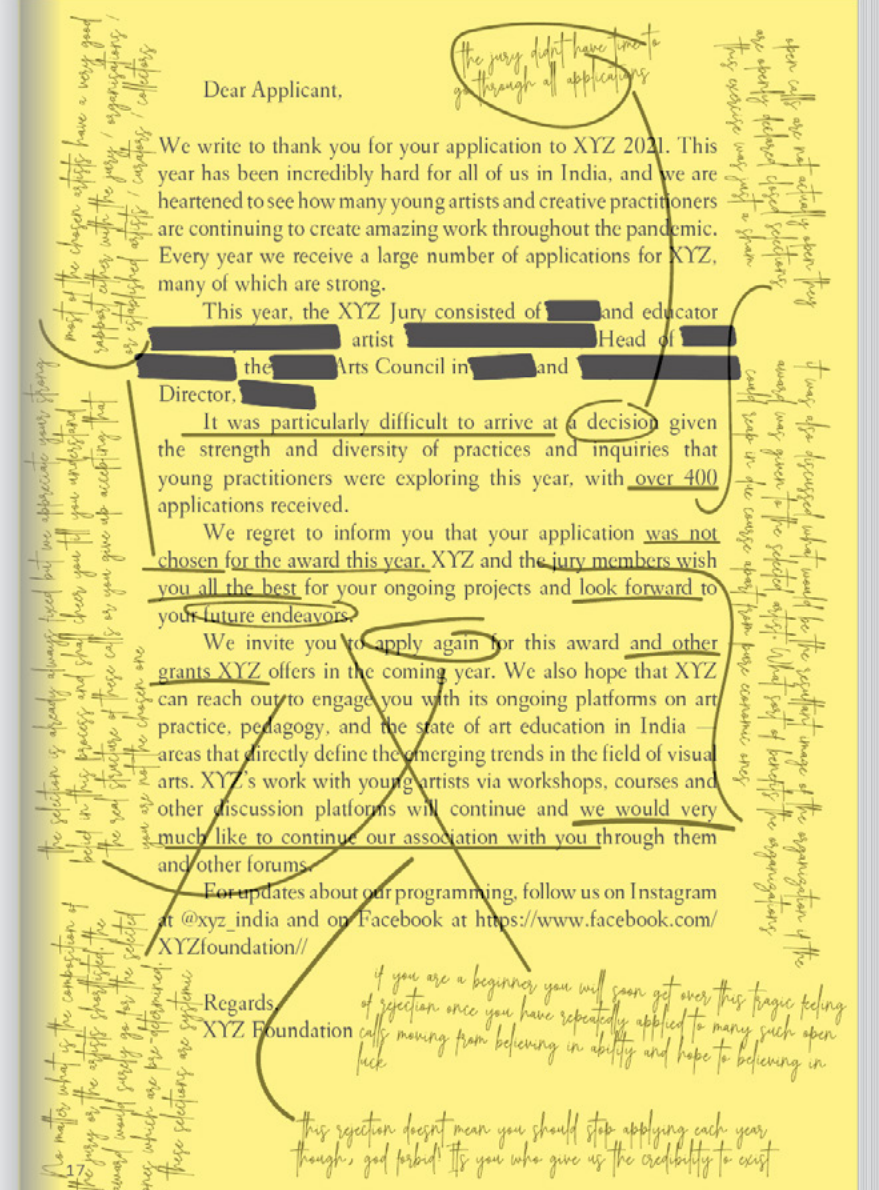 the jury didn't have time to
go through all applications
Dear Applicant,
We write to thank you for your application to XYZ 2021. This
year has been incredibly hard for all of us in India, and we are
heartened to see how many young artists and creative practitioners
are continuing to create amazing work throughout the pandemic.
Every year we receive a large number of applications for XYZ,
many of which are strong.
This year, the XYZ Jury consisted of and educator
artist Head of
the Arts Council in and
Director,
It was particularly difficult to arrive at a decision given
the strength and diversity of practices and inquiries that
young practitioners were exploring this year, with over 400
applications received.
We regret to inform you that your application was not
chosen for the award this year. XYZ and the jury members wish
you all the best for your ongoing projects and look forward to
your future endeavors.
We invite you to apply again for this award and other
grants XYZ offers in the coming year. We also hope that XYZ
can reach out to engage you with its ongoing platforms on art
practice, pedagogy, and the state of art education in India —
areas that directly define the emerging trends in the field of visual
arts. XYZ's work with young artists via workshops, courses and
other discussion platforms will continue and we would very
much like to continue our association with you through them
and other forums.
For updates about our programming, follow us on Instagram
at @xyz_india and on Facebook at https://www.facebook.com/
XYZfoundation//
Regards,
XYZ Foundation
most of the chosen artists have a very good
rapport either with the jury / organisations /
or established artists / curators / collectors
the selection is already always fixed but we appreciate your strong
belief in this process and shall cheer you till you understand
the real structure of these calls or you give up accepting that
you are not the chosen one
No matter what is the composition of
the jury or the artists shortlisted, the
award would surely go for the selected
ones which are pre-determined.
these selections are systemic
open calls are not actually open they
are openly declared closed selections
this exercise was just a sham
it was also discussed what would be the resultant image of the organization if the
award was given to the selected artist. What sort of benefits the organizations
could reap in due course apart from bare economic ones
if you are a beginner you will soon get over this tragic feeling
of rejection once you have repeatedly applied to many such open
calls moving from believing in ability and hope to believing in
luck
this rejection doesnt mean you should stop applying each year
though, god forbid! Its you who give us the credibility to exist
17